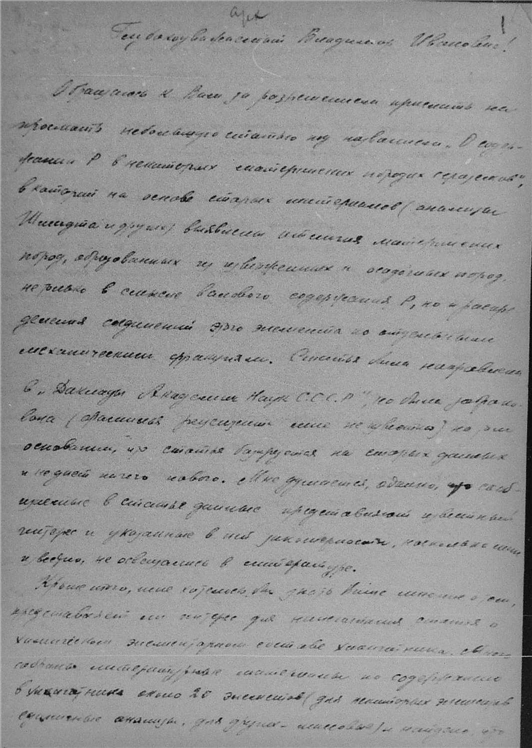 арх
1
Глубокоуважаемый Владимир Иванович!
Обращаюсь к Вам за разрешением прислать на
просмотр небольшую статью под названием „О содер-
жании P в некоторых материнских породах
в которой на основе старых материалов (анализы
Шмидта и других) выявлены отличия материнских
пород, образованных из изверженных и осадочных пород,
не только в смысле валового содержания P, но и распре-
деления соединений этого элемента по отдельным
механическим фракциям. Статья была направлена
в „Доклады Академии Наук СССР“, но была забрако-
вана (фамилия рецензента мне не известна) на том
основании, что статья базируется на старых данных
и не даст ничего нового. Мне думается, однако, что сооб-
щаемые в статье данные представляют известный
интерес и указанные в ней закономерности, насколько мне
известно, не освещались в литературе.
Кроме того, мне хотелось бы знать Ваше мнение о том,
представляет ли интерес для статья о
химическом элементарном составе Мною
собраны литературные материалы по содержанию
в около 20 элементов (для некоторых элементов
единичные анализы, для других – массовые) и найдено, что